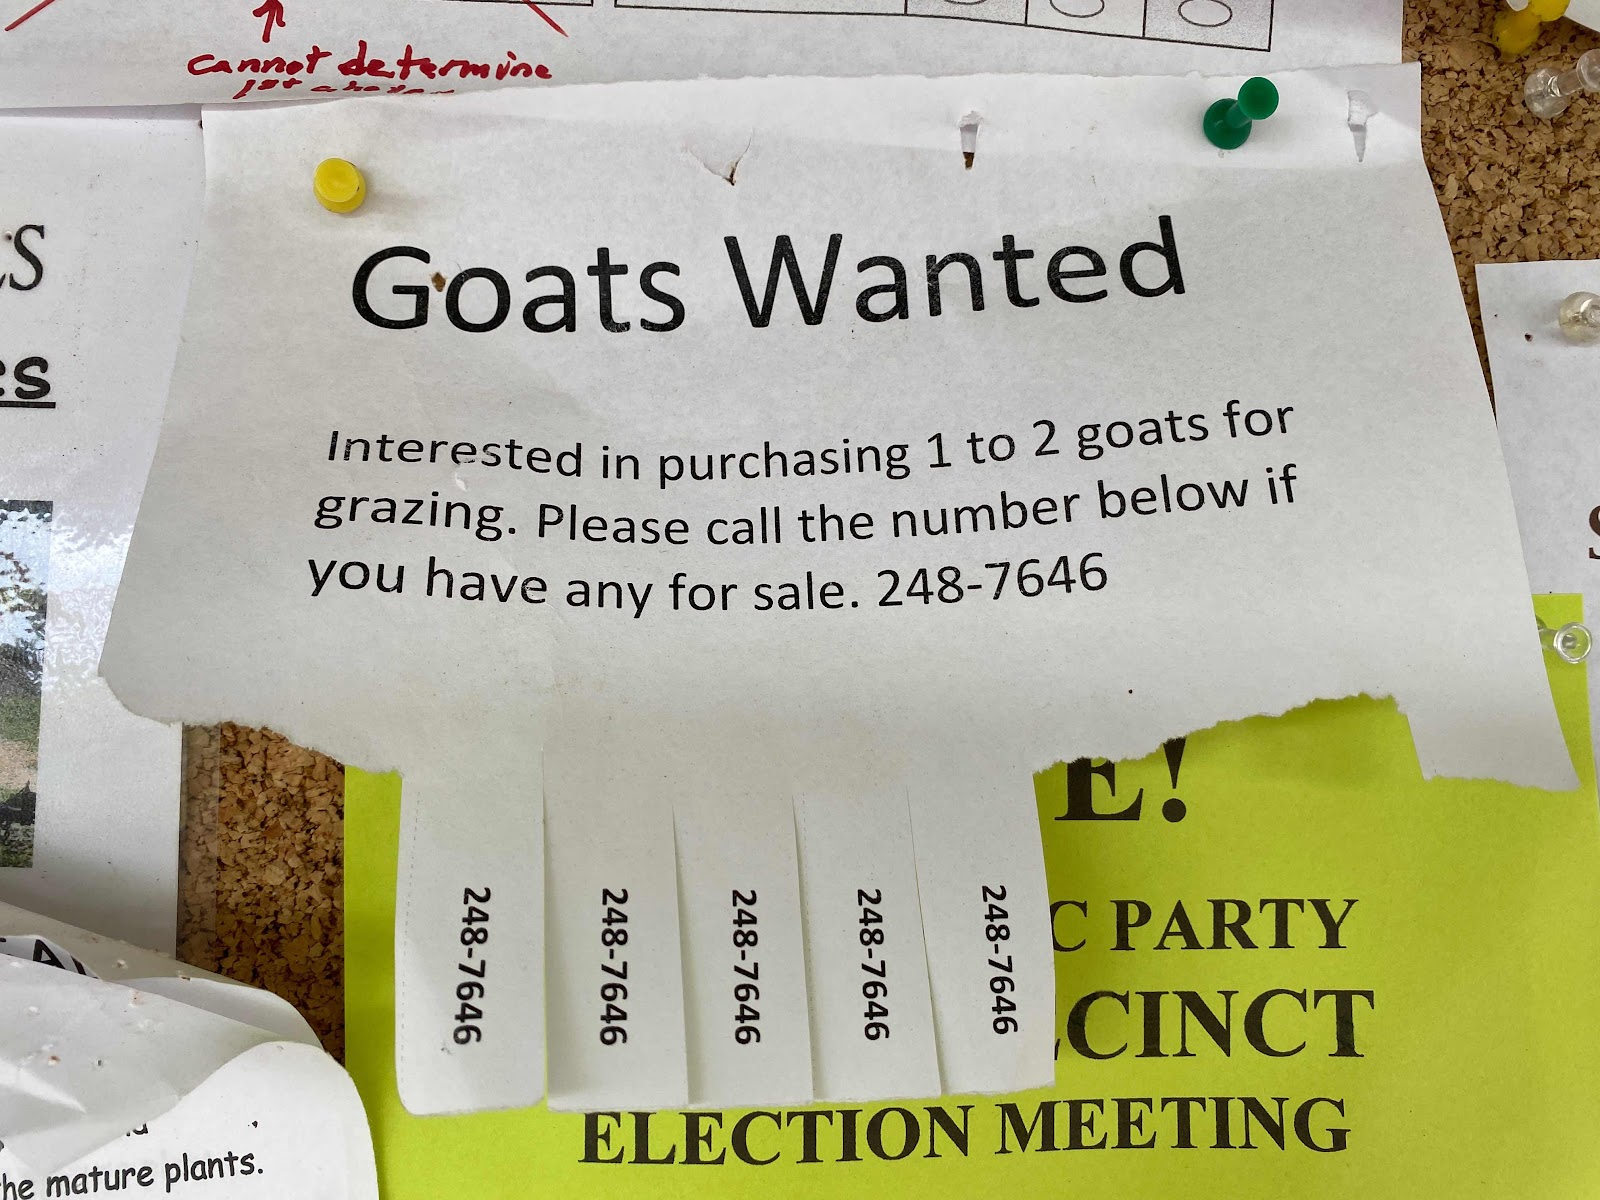 cannot determine
Goats Wanted
Interested in purchasing 1 to 2 goats for
grazing. Please call the number below if
you have any for sale. 248-7646
248-7646
248-7646
248-7646
248-7646
248-7646
E!
C PARTY
CINCT
ELECTION MEETING
he mature plants.